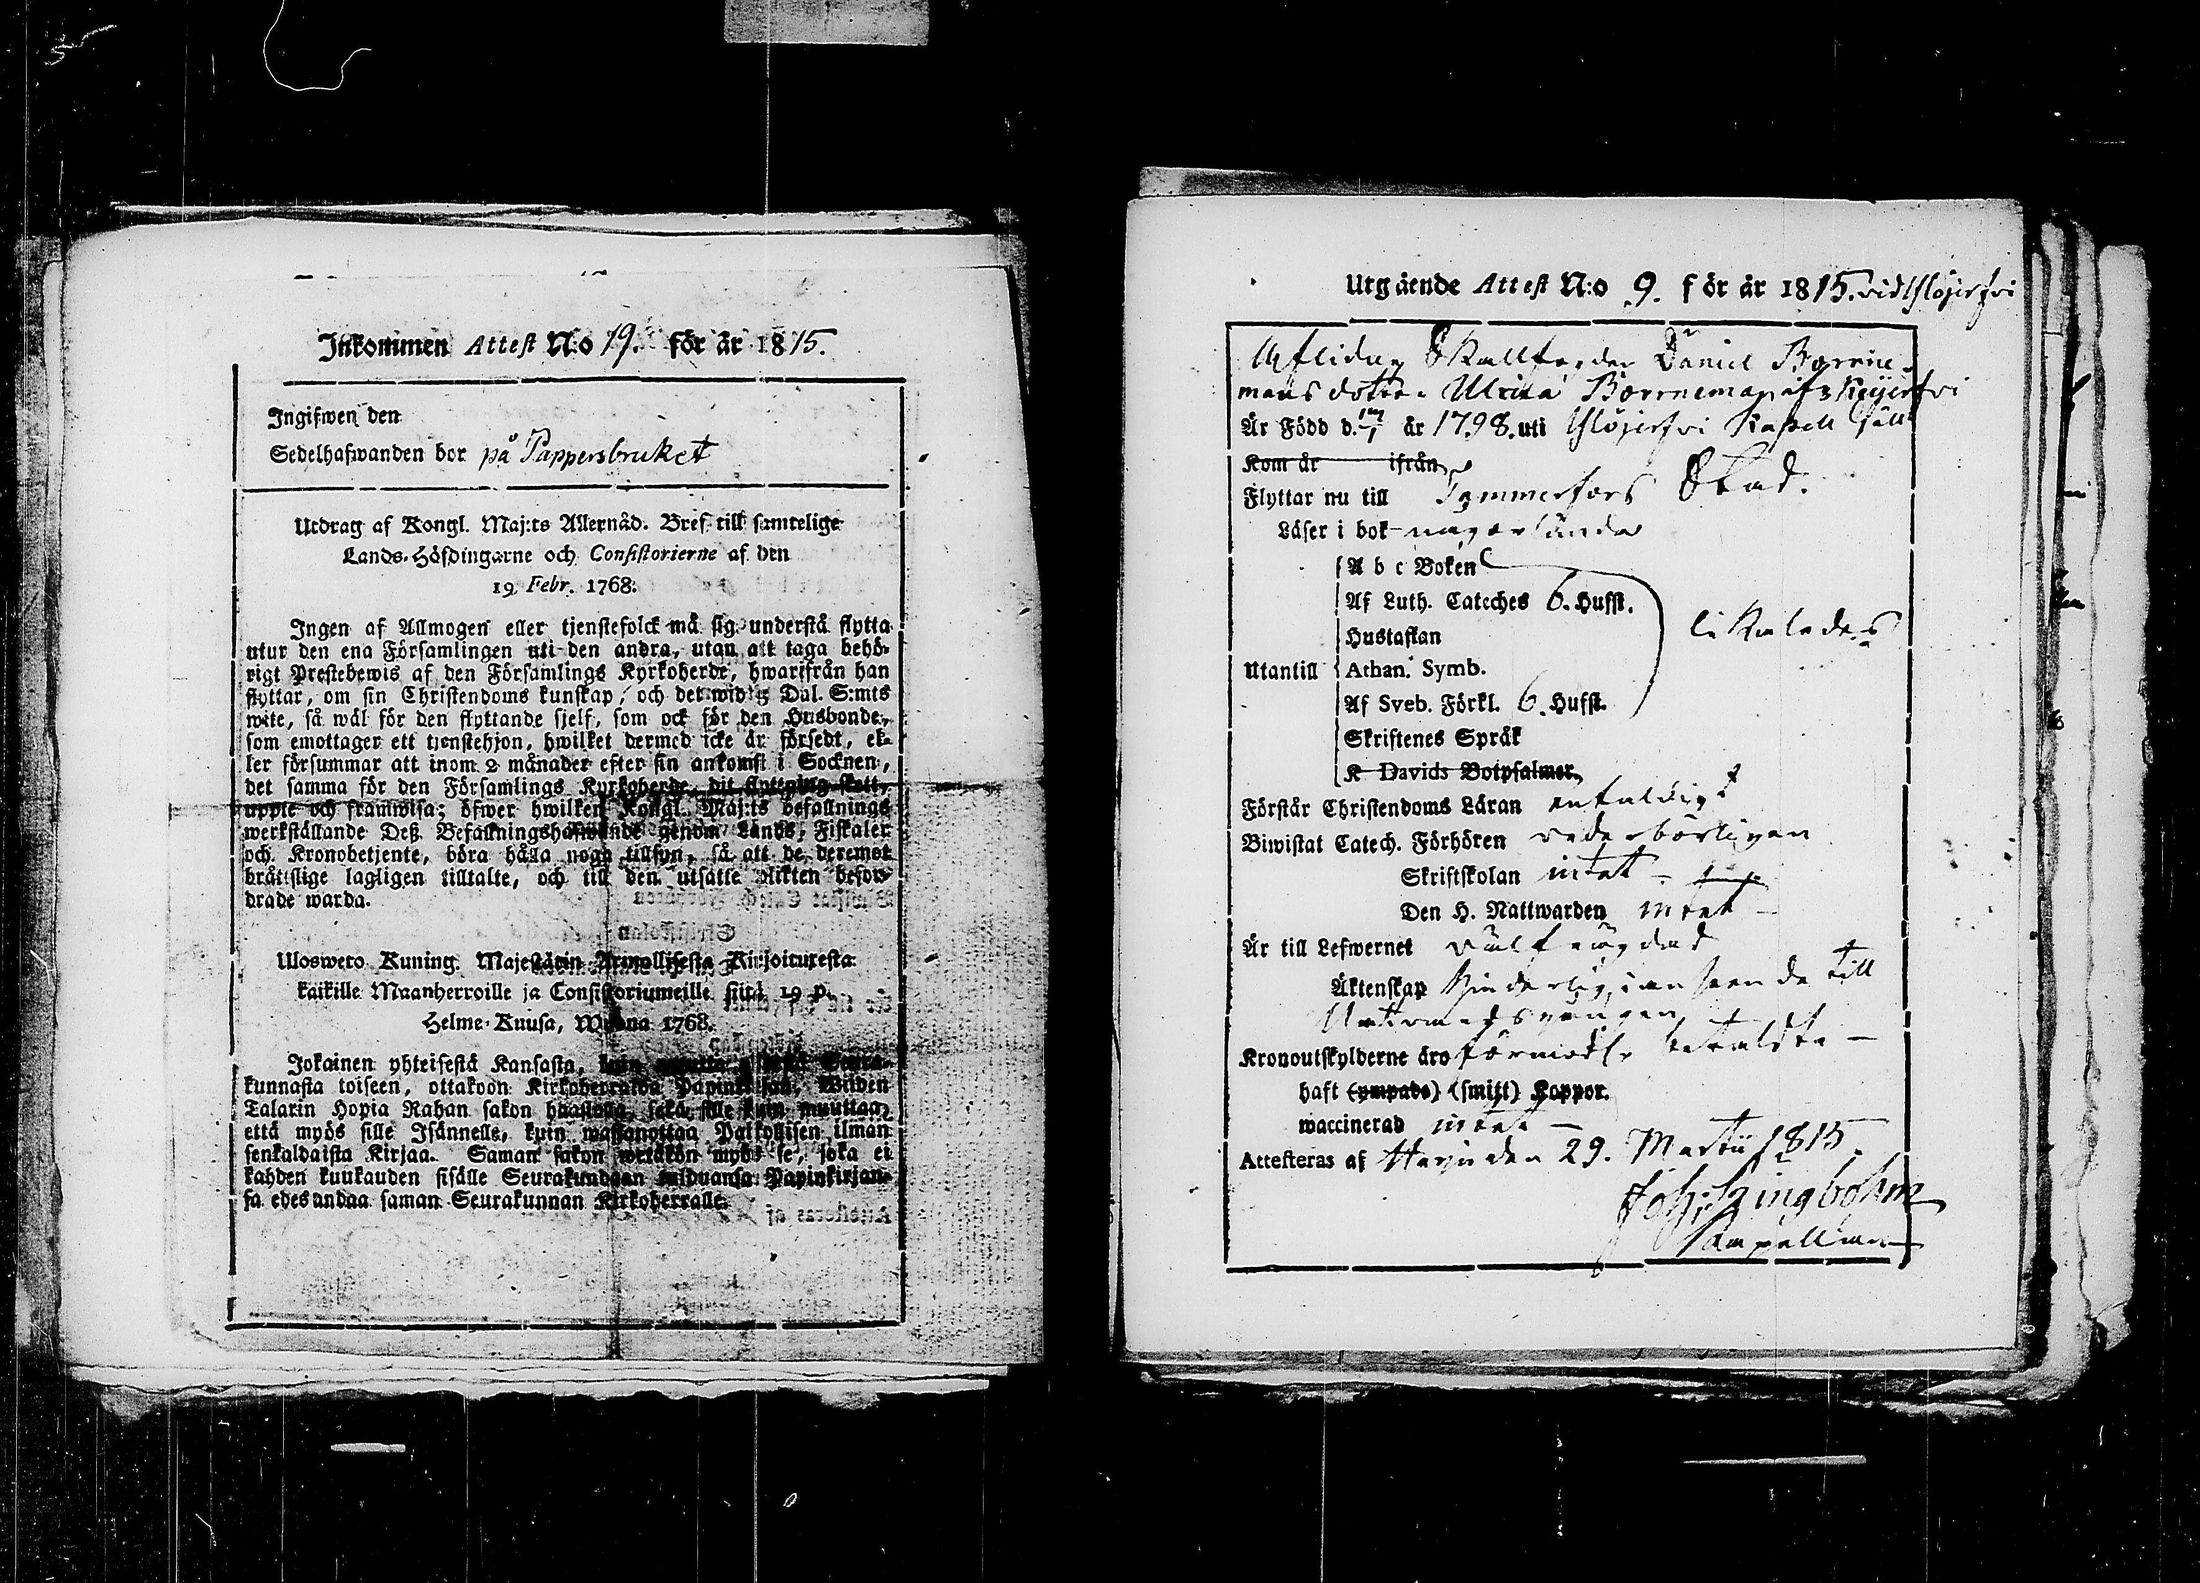 Inkommen Attest N:o 19. för år 1815.
Ingifwen den
Sedelhafwanden bor på Pappersbruket
Utdrag af Kongl. Maj:ts Allernåd. Bref till samtelige
Lands-Höfdingarne och Consistorierne af den
19 Febr. 1768.
Ingen af Allmogen eller tjenstefolck må sig understå flytta
utur den ena Församlingen uti den andra, utan att taga behö-
rigt Prestebewis af den Församlings Kyrkoherde, hwarifrån han
flyttar, om sin Christendoms kunskap, och det widtg Dal. S:mts
wite, så wäl för den flyttande sjelf, som ock för den Husbonde,
som emottager ett tjenstehjon, hwilket dermed icke är försedt, el-
ler försummar att inom 2 månader efter sin ankomst i Socknen,
det samma för den Församlings Kyrkoherde, dit flyttning skett,
uppte och framwisa; öfwer hwilket Kongl. Maj:ts befallnings
werkställande Deß Befallningshafwande genom Lands, Fiskaler
och Kronobetjente, böra hålla noga tillsyn, så att de deremot
bråttslige lagligen tilltalte, och till den utsatte plikten befor-
drade warda.
Uloswero Kuning. Majestätin Armollisesta Kirjoituresta
kaikille Maanherroille ja Consistoriumeille siitä 19 p.
Helme-Kuusa, Wuona 1768.
Jokainen yhteisestä Kansasta, kuin Seura-
kunnasta toiseen, ottakoon Kirkoherralda Papinkirjan, Wiiden
Talarin Hopia Rahan sakon haastolla, sekä sille kuin muuttaa,
että myös sille Isännelle, kuin wastanottaa Palkollisen ilman
senkaldaista Kirjaa. Saman sakon wetäkön myös se, joka ei
kahden kuukauden sisälle Seurakundaan tulduansa Papinkirjan-
sa edesandaa saman Seurakunnan Kirkoherralle.
Utgående Attest N:o 9. för år 1815. vid
Aflidne Skallfogden Daniel Borrne-
mans dotter Ulrica Borrneman
Är Född d. år 1798. uti Kapell
Kom år ifrån
Flyttar nu till Tammerfors Stad.
Läser i bok någorlunda
A b c Boken
Af Luth. Cateches 6. Hufst.
Hustaflan likaledes
Utantill Athan. Symb.
Af Sveb. Förkl. 6. Hufst.
Skriftenes Språk
K Davids Botpsalmer
Förstår Christendoms Läran enfaldigt
Biwistat Catech. Förhören vederbörligen
Skriftskolan intet
Den H. Nattwarden intet
Är till Lefwernet välfrägdad
Äktenskap hinderlig i anseende till
Kronoutskylderne äro förmodl. betaldte
haft (ympade) (smitt) Koppor.
waccinerad intet
Attesteras af den 29. Martii 1815.
Joh: Ringbohm
Kapellman